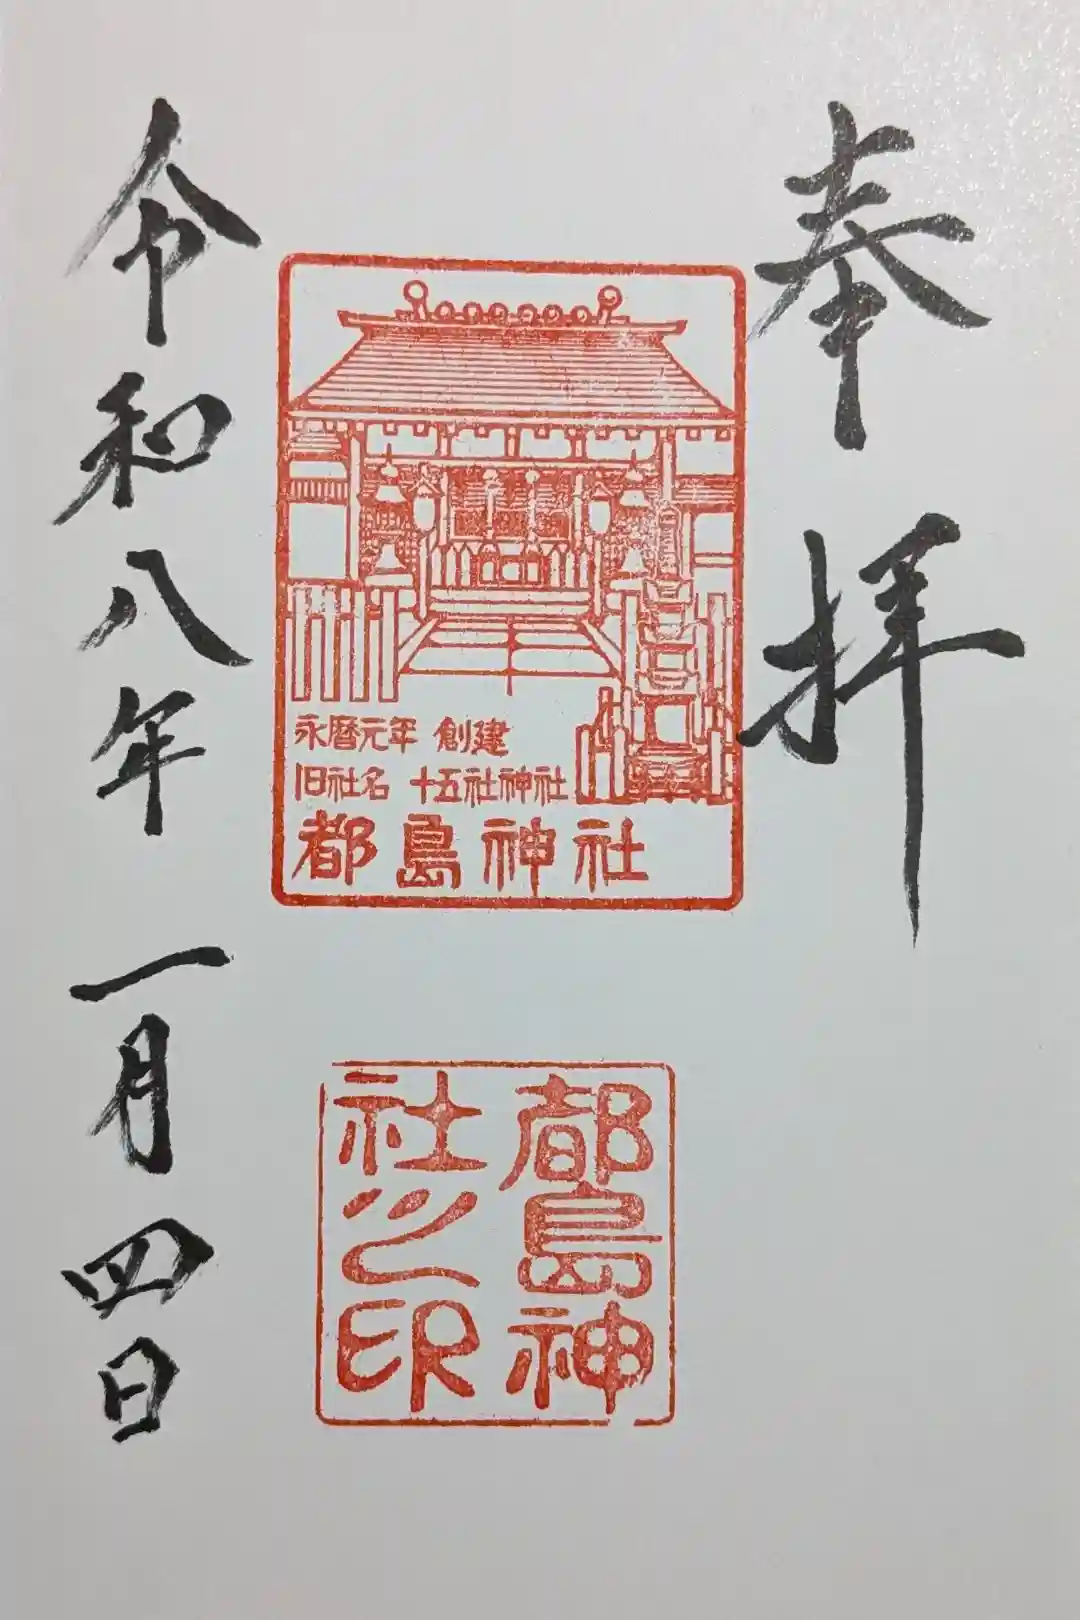 奉拝
永暦元年 創建
旧社名 十五社神社
都島神社
都島神
社之印
令和八年一月四日